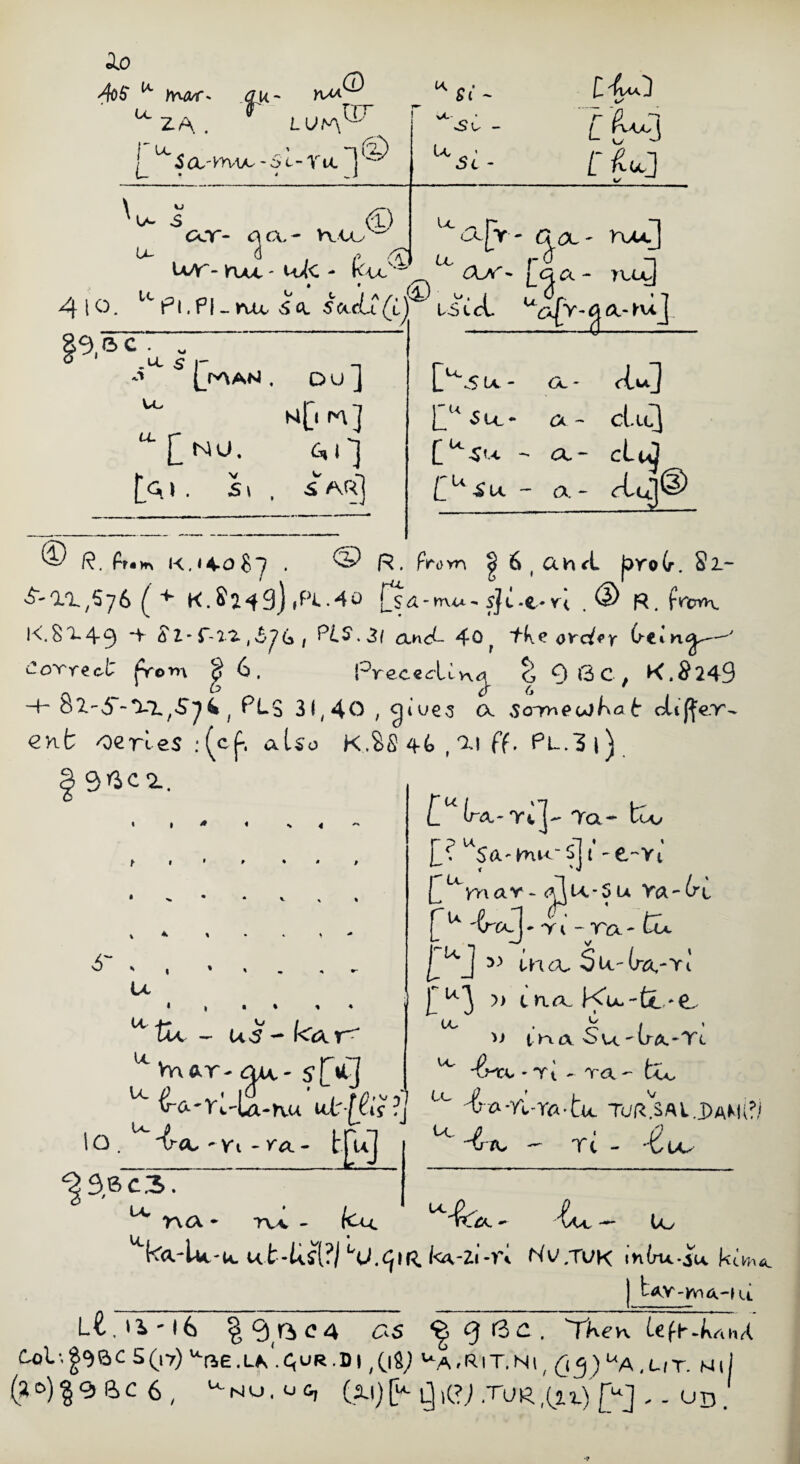 20
405 ᵘ mar- gu- nu① ᵘ si - [ḫu]
ᵘ ZA . LUM① ᵘ si - [ḫu]
[ᵘ ṣa-mu-si-ru]② ᵘ si - [ḫu]
ᵘ šar- ga- nu① ᵘ a[r- ga- nu]
ᵘ ur-nu-uk-ku① ᵘ ar- [ga- nu]
410. ᵘ PI.PI-nu ša šadî(i)① išid ᵘ a[r-ga-ni]
§9,BC.
ᵘ š [MAN. DU] [ᵘ šu- a- du]
ᵘ N[IM] [ᵘ šu- a- du]
ᵘ [NU. GI] [ᵘ šu - a- du]
[GI. ŠI . ŠAR] [ᵘ šu - a- du]③
① R. from K.14087 . ② R. from § 6, and prob. 82-
5-22,576 (+ K.8249), PL.40 [ṣa-mu-s]i-e-ri . ③ R. from
K.8249 + 82-5-22,576, PLS.31 and 40, the order being
correct from § 6. Preceding § 9BC, K.8249
+ 82-5-22,576, PLS 31,40, gives a somewhat differ-
ent series :(cf. also K.8846, 21 ff. PL.31).
§ 9BC2.
[ᵘ ba-ri]- ra- tu
[? ᵘ ṣa-mu-s]i-e-ri
[ᵘ mar- g]u-su ra-bi
[ᵘ ba]-ri-ra-tu
5 [ᵘ] " ina Šu-ba-ri
ᵘ [ᵘ] " ina Ku-ti-e
ᵘ tu - uš - kar ᵘ " ina Šu-ba-ri
ᵘ mar- gu- s[i] ᵘ ba - ri - ra- tu
ᵘ ba-ri-la-nu ut-[liš?] ᵘ ba-ri-ra-tu TUR.SAL.DAM(?)
10. ᵘ ba -ri -ra- t[u] ᵘ ba - ri - lu
§9,BC3.
ᵘ na- ni - ku ᵘ ka- lu - u
ᵘ ka-lu-u ut-liš(?) ᵘ U.GIR ka-zi-ri NU.TUK inbu-šu kima
tar-ma-ni
Ll. 12-16 § 9,BC4 as § 9BC. Then left-hand
Col. §9BC 5(17) ᵘ BE.LA.GUR.DI,(18) ᵘ A.RIT.NI,(19) ᵘ A.LIT.NI/
(20) § 9 BC 6, ᵘ NU.UG, (21)[ᵘ t]i(?).TUR,(22) [ᵘ] -- UD.